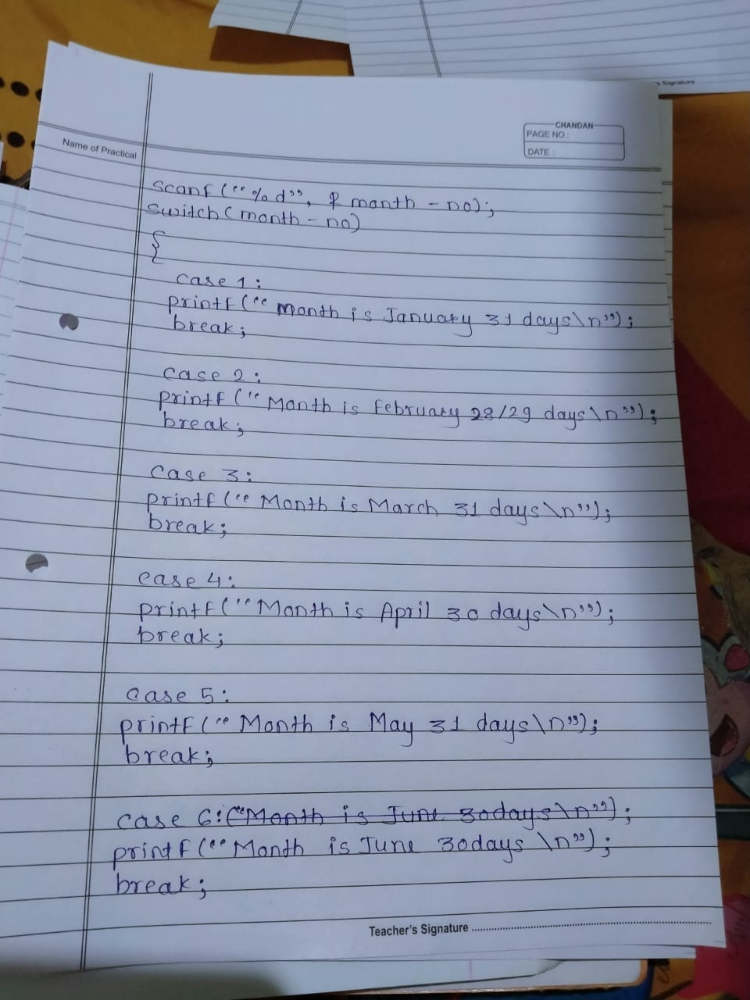 Signature
CHANDAN
PAGE NO.:
DATE :
Name of Practical
scanf (“%d”, & month - no);
switch (month - no)
{
case 1:
printf (“ Month is January 31 days\n”);
break;
case 2:
printf (“ Month is February 28/29 days\n”);
break;
case 3:
printf (“ Month is March 31 days\n”);
break;
case 4:
printf (“ Month is April 30 days\n”);
break;
case 5:
printf (“ Month is May 31 days\n”);
break;
case 6: (“Month is June 30days\n”);
printf (“ Month is June 30days \n”);
break;
Teacher's Signature